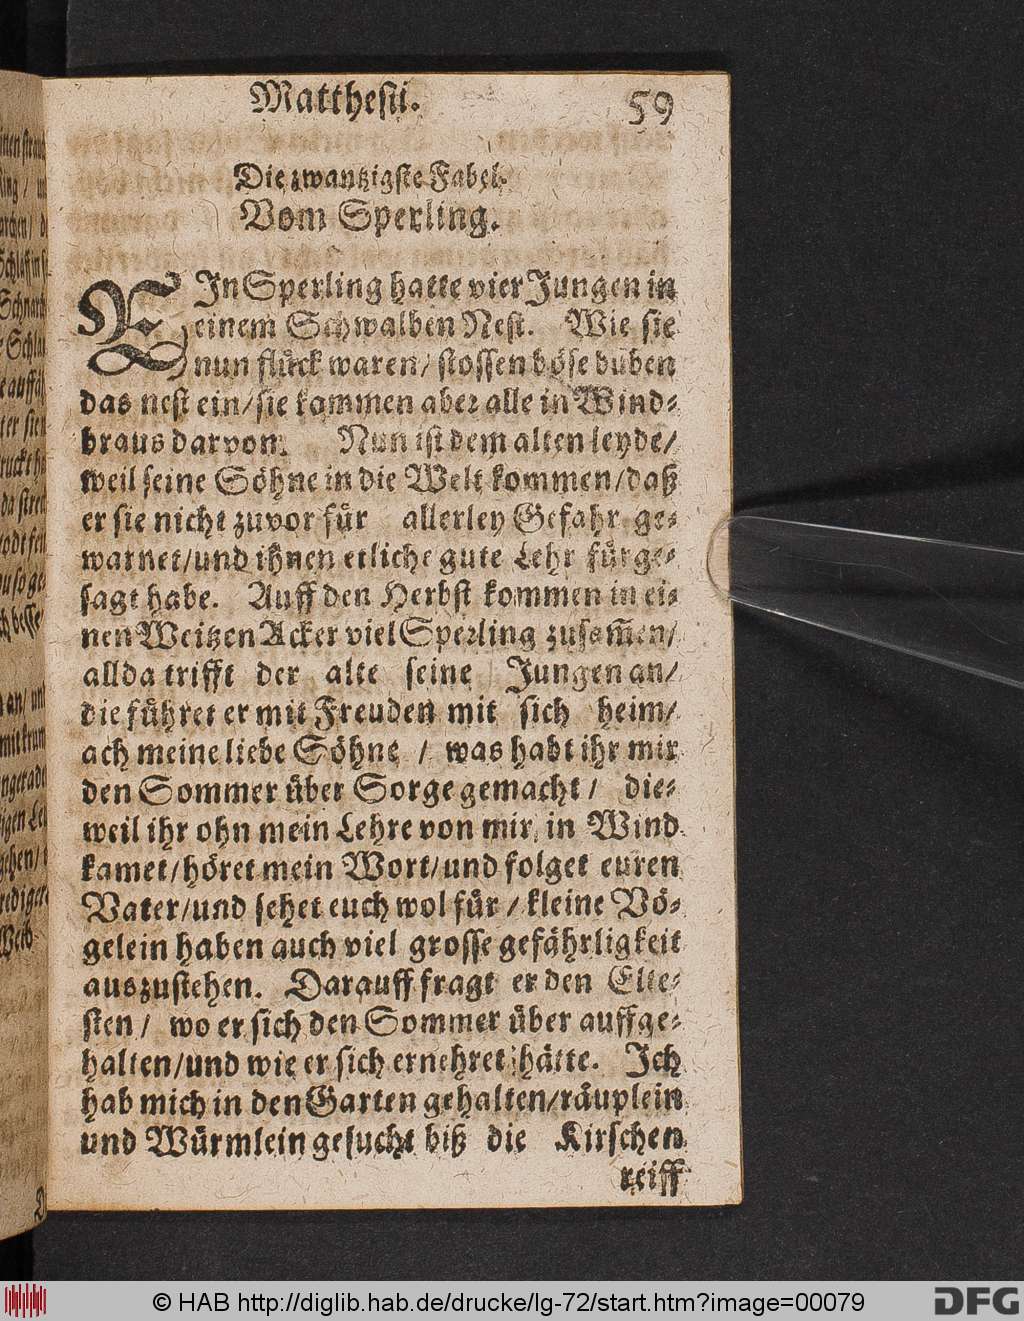 Matthesii. 59
Die zwantzigste Fabel.
Vom Sperling.
EIn Sperling hatte vier Jungen in
einem Schwalben Nest. Wie sie
nun flück waren/ stossen böse buben
das nest ein/ sie kommen aber alle in Wind-
braus darvon. Nun ist dem alten leyde/
weil seine Söhne in die Welt kommen/ daß
er sie nicht zuvor für allerley Gefahr ge-
warnet/ und ihnen etliche gute Lehr fürge-
sagt habe. Auff den Herbst kommen in ei-
nen Weitzen Acker viel Sperling zusam̃en/
allda trifft der alte seine Jungen an/
die führet er mit Freuden mit sich heim/
ach meine liebe Söhne / was habt ihr mir
den Sommer über Sorge gemacht / die-
weil ihr ohn mein Lehre von mir in Wind
kamet/ höret mein Wort/ und folget euren
Vater/ und sehet euch wol für / kleine Vö-
gelein haben auch viel grosse gefährligkeit
auszustehen. Darauff fragt er den Elte-
sten / wo er sich den Sommer über auffge-
halten/ und wie er sich ernehret hätte. Ich
hab mich in den Garten gehalten/ räuplein
und Würmlein gesucht biß die Kirschen
reiff
© HAB http://diglib.hab.de/drucke/lg-72/start.htm?image=00079
DFG